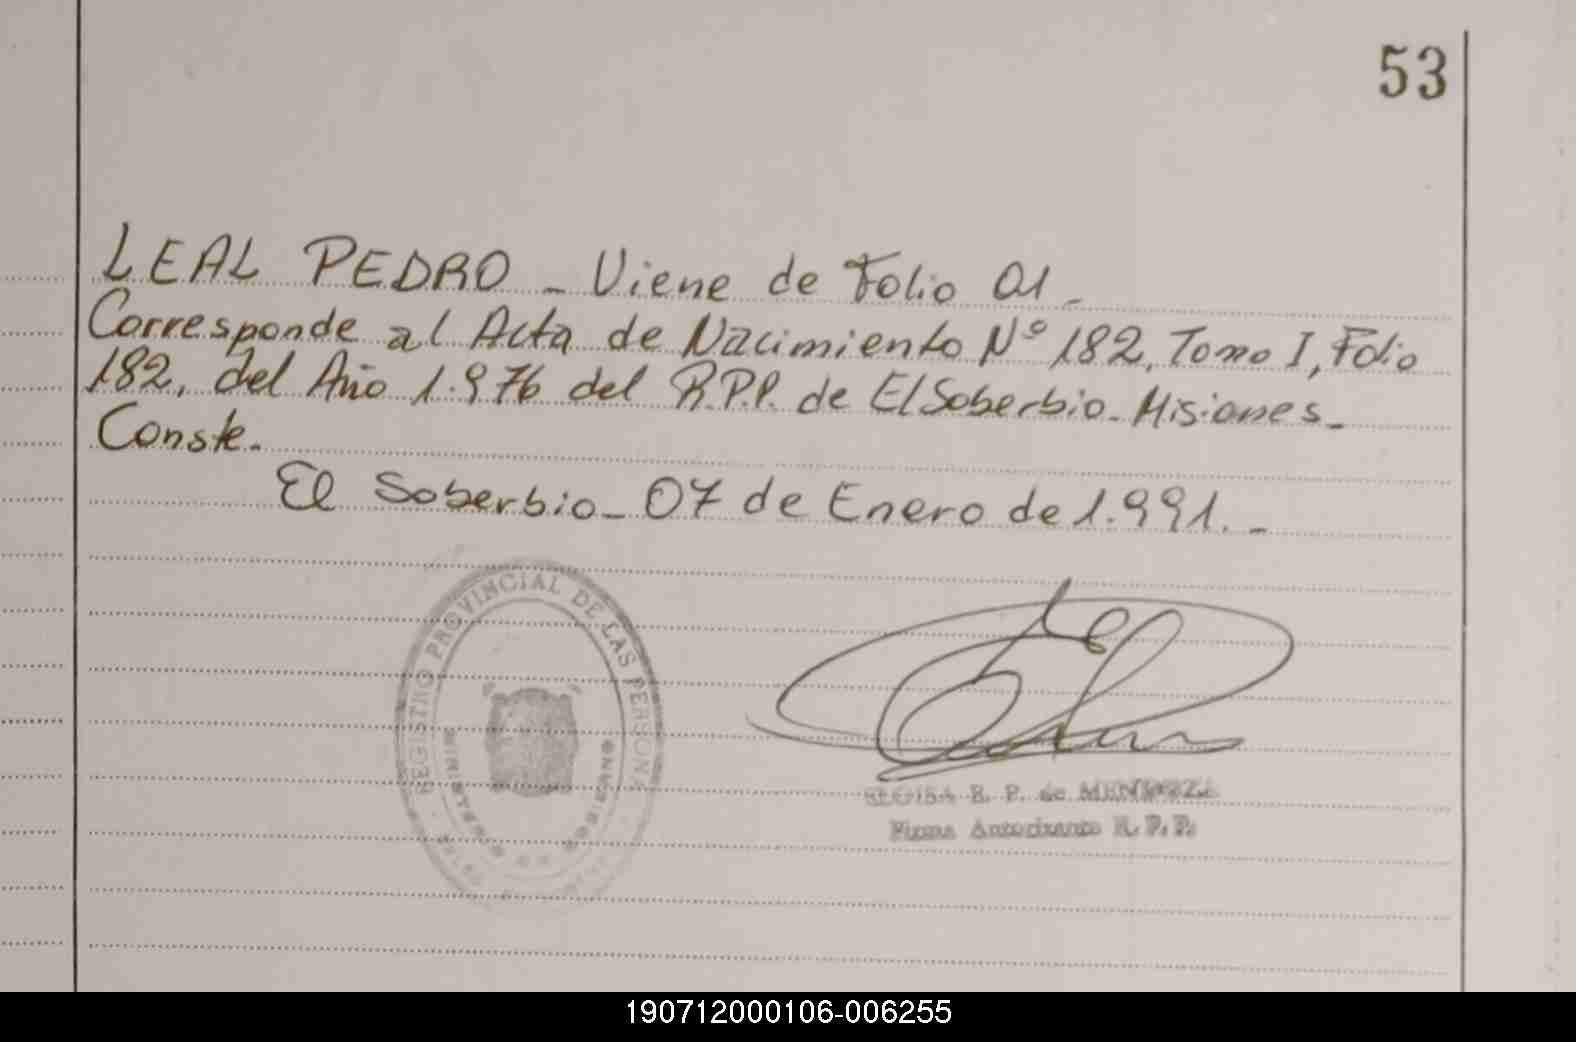 53
LEAL PEDRO _ Viene de Folio 01 _
Corresponde al Acta de Nacimiento Nº 182, Tomo I, Folio
182, del Año 1.976 del R.P.P. de El Soberbio - Misiones _
Conste.
El Soberbio _ 07 de Enero de 1.991. _
REGISTRO PROVINCIAL DE LAS PERSONAS
MINISTERIO DE GOBIERNO
R. P. de MENDOZA
Firma Autorizante R. P. P.
190712000106-006255